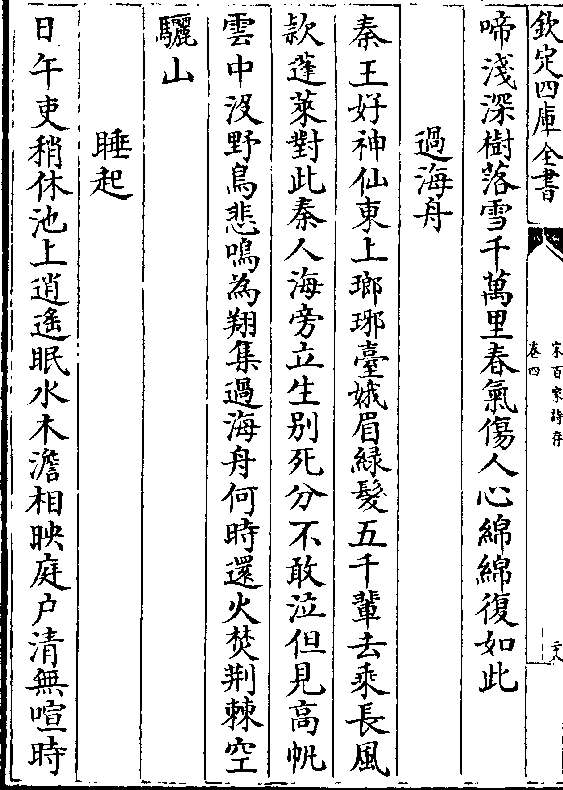 欽定四庫全書
宋百家詩存
卷四
啼淺深樹落雪千萬里春氣傷人心綿綿復如此
過海舟
秦王好神仙東上瑯琊臺娥眉緑髮五千輩去乘長風
款蓬萊對此秦人海旁立生别死分不敢泣但見高帆
雲中沒野鳥悲鳴為翔集過海舟何時還火焚荆棘空
驪山
睡起
日午吏稍休池上逍遙眠水木澹相映庭户清無喧時